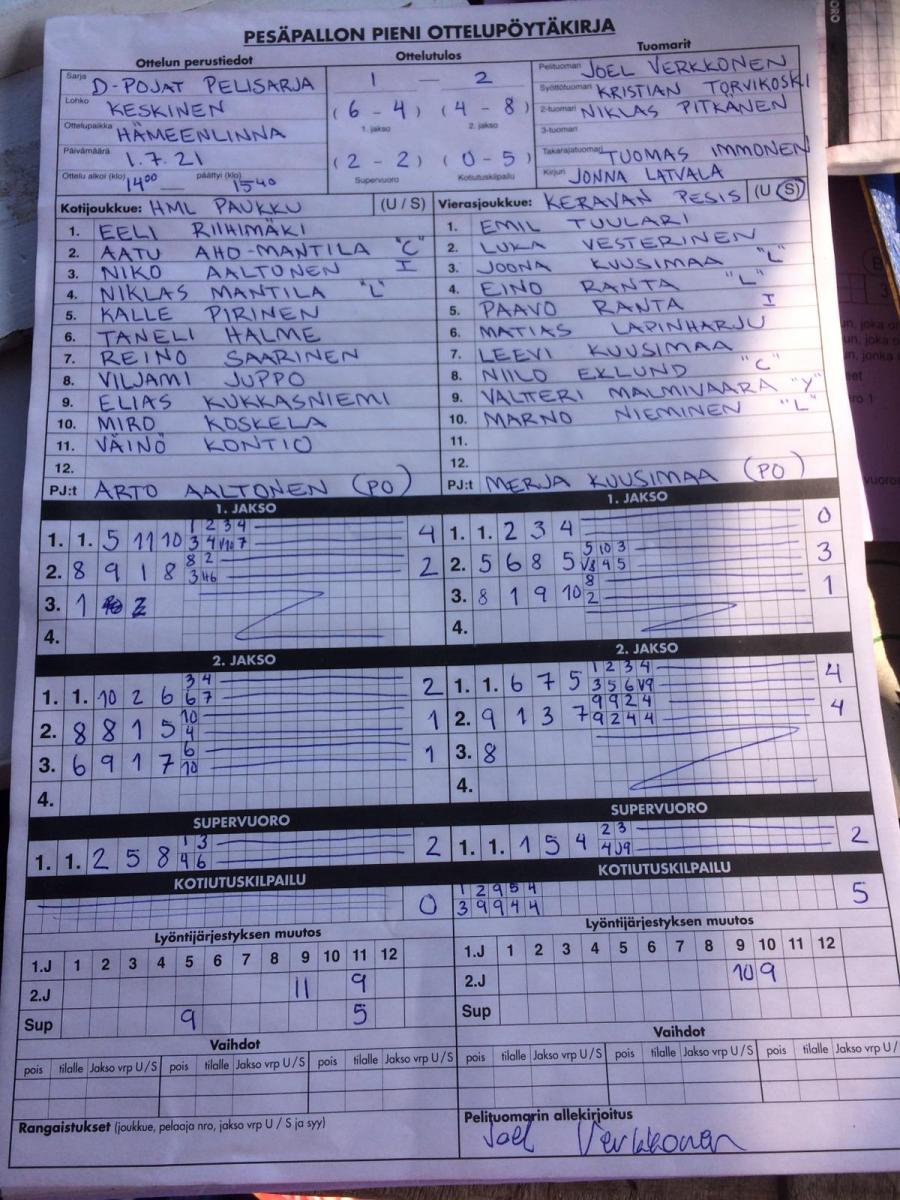 PESÄPALLON PIENI OTTELUPÖYTÄKIRJA
Ottelun perustiedot Ottelutulos Tuomarit
Sarja D-POJAT PELISARJA
Lohko KESKINEN
Ottelupaikka HÄMEENLINNA
Päivämäärä 1.7.21
Ottelu alkoi (klo) 14⁰⁰ päättyi (klo) 15⁴⁰
1 — 2
(6 - 4) (4 - 8)
1. jakso 2. jakso
(2 - 2) (0 - 5)
Supervuoro Kotiutuskilpailu
Pelituomari JOEL VERKKONEN
Syöttötuomari KRISTIAN TORVIKOSKI
2-tuomari NIKLAS PITKÄNEN
3-tuomari
Takarajatuomari TUOMAS IMMONEN
Kirjuri JONNA LATVALA
Kotijoukkue: HML PAUKKU (U / S)
1. EELI RIIHIMÄKI
2. AATU AHO-MANTILA "C"
3. NIKO AALTONEN I
4. NIKLAS MANTILA "L"
5. KALLE PIRINEN
6. TANELI HALME
7. REINO SAARINEN
8. VILJAMI JUPPO
9. ELIAS KUKKASNIEMI
10. MIRO KOSKELA
11. VÄINÖ KONTIO
12.
PJ:t ARTO AALTONEN (PO)
Vierasjoukkue: KERAVAN PESIS (U / S)
1. EMIL TUULARI
2. LUKA VESTERINEN
3. JOONA KUUSIMAA "L"
4. EINO RANTA "L"
5. PAAVO RANTA I
6. MATIAS LAPINHARJU
7. LEEVI KUUSIMAA
8. NIILO EKLUND "C"
9. VALTERI MALMIVAARA "Y"
10. MARNO NIEMINEN "L"
11.
12.
PJ:t MERJA KUUSIMAA (PO)
1. JAKSO
1 2 3 4
1. 1. 5 11 10 3 4 V10 7 4
8 2
2. 8 9 1 8 3 2
3. 1 2
4.
1. JAKSO
1. 1. 2 3 4 0
5 10 3
2. 5 6 8 5 V8 4 5 3
8
3. 8 1 9 10 2 1
4.
2. JAKSO
3 4
1. 1. 10 2 6 6 7 2
10
2. 8 8 1 5 4 1
6
3. 6 9 1 7 10 1
4.
2. JAKSO
1 2 3 4
1. 1. 6 7 5 3 5 6 V9 4
9 9 2 4
2. 9 1 3 7 9 2 4 4 4
3. 8
4.
SUPERVUORO
1 3
1. 1. 2 5 8 4 6 2
SUPERVUORO
2 3
1. 1. 1 5 4 4 V9 2
KOTIUTUSKILPAILU
0
KOTIUTUSKILPAILU
1 2 9 5 4
3 9 9 4 4 5
Lyöntijärjestyksen muutos
1.J 1 2 3 4 5 6 7 8 9 10 11 12
2.J 11 9
Sup 9 5
Lyöntijärjestyksen muutos
1.J 1 2 3 4 5 6 7 8 9 10 11 12
2.J 10 9
Sup
Vaihdot
pois tilalle Jakso vrp U / S pois tilalle Jakso vrp U / S pois tilalle Jakso vrp U / S
Vaihdot
pois tilalle Jakso vrp U / S pois tilalle Jakso vrp U / S pois tilalle Jakso vrp U /
Rangaistukset (joukkue, pelaaja nro, jakso vrp U / S ja syy)
Pelituomarin allekirjoitus
Joel Verkkonen